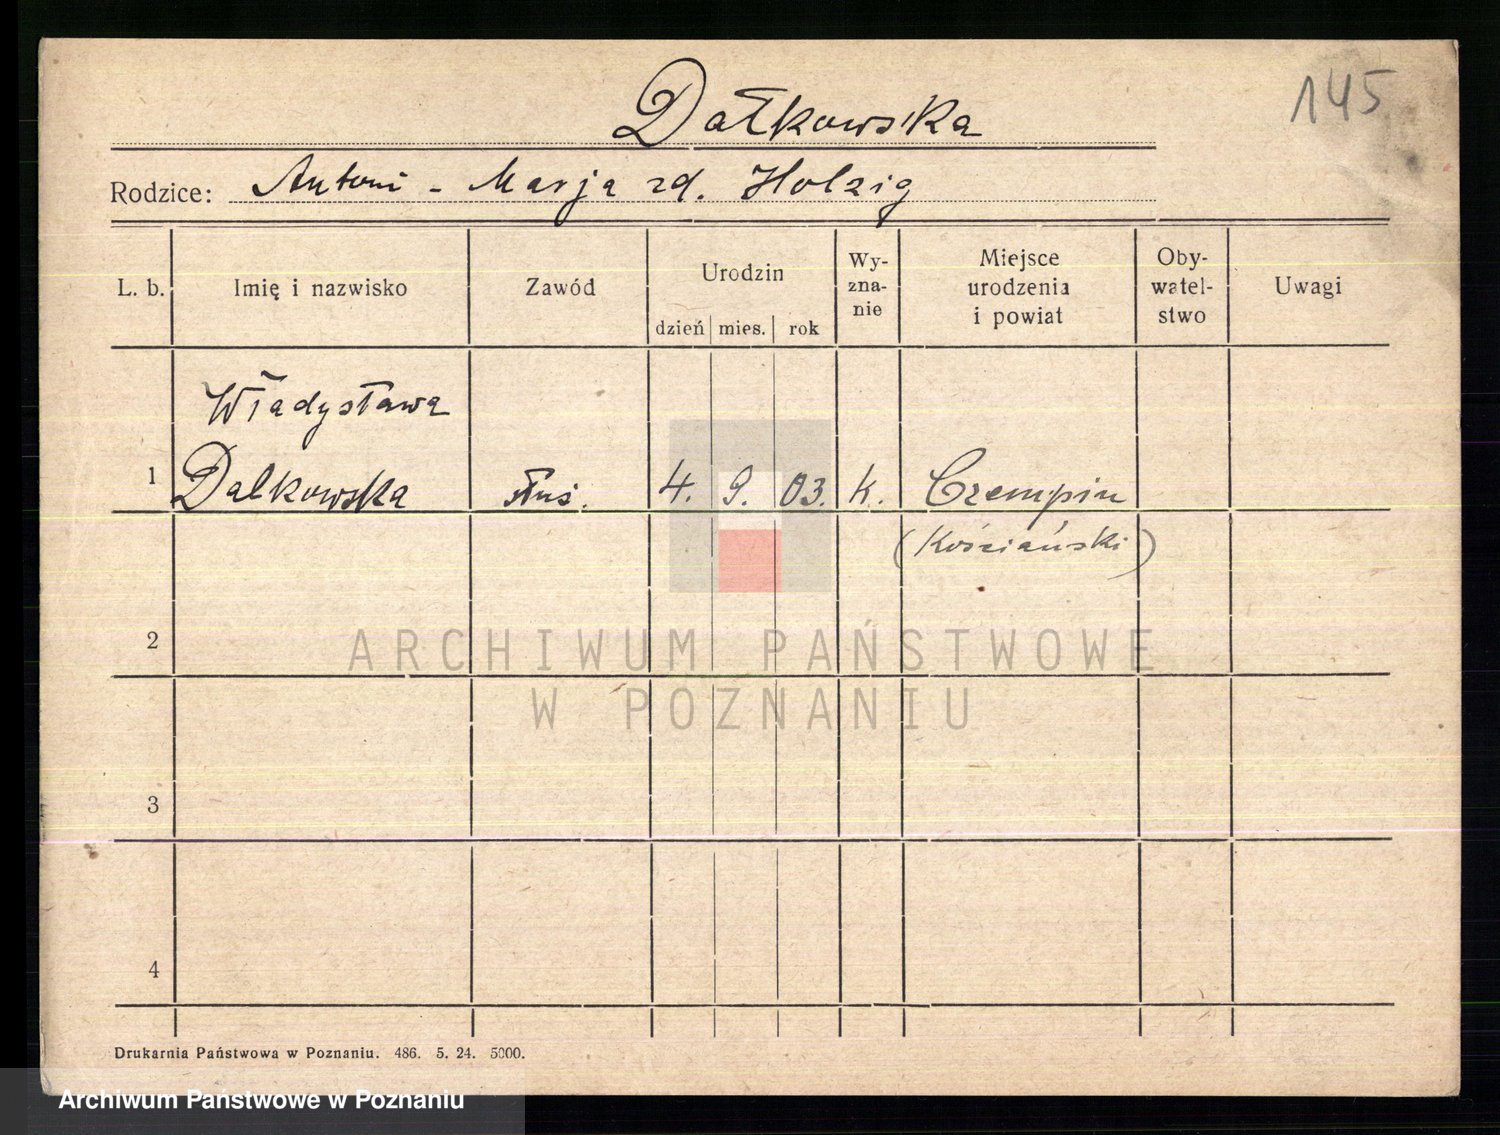 145
Dałkowska
Rodzice: Antoni - Marja zd. Holzig
L. b. Imię i nazwisko Zawód Urodzin dzień mies. rok Wy-zna-nie Miejsce urodzenia i powiat Oby-watel-stwo Uwagi
Władysława
1 Dalkowska służ. 4. 9. 03. k. Czempin
(Kościański)
2
ARCHIWUM PAŃSTWOWE
W POZNANIU
3
4
Drukarnia Państwowa w Poznaniu. 486. 5. 24. 5000.
Archiwum Państwowe w Poznaniu